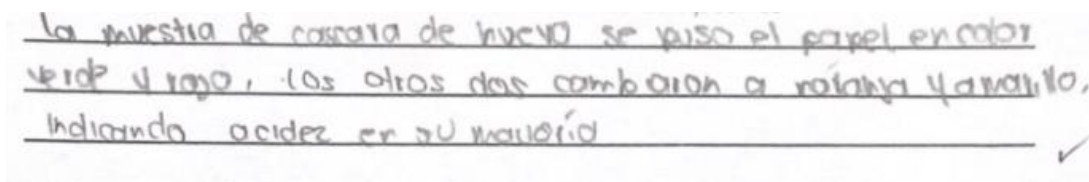 la muestra de cascara de huevo se puso el papel en color
verde y rojo, los otros dos cambiaron a naranja y amarillo,
indicando acidez en su mayoría